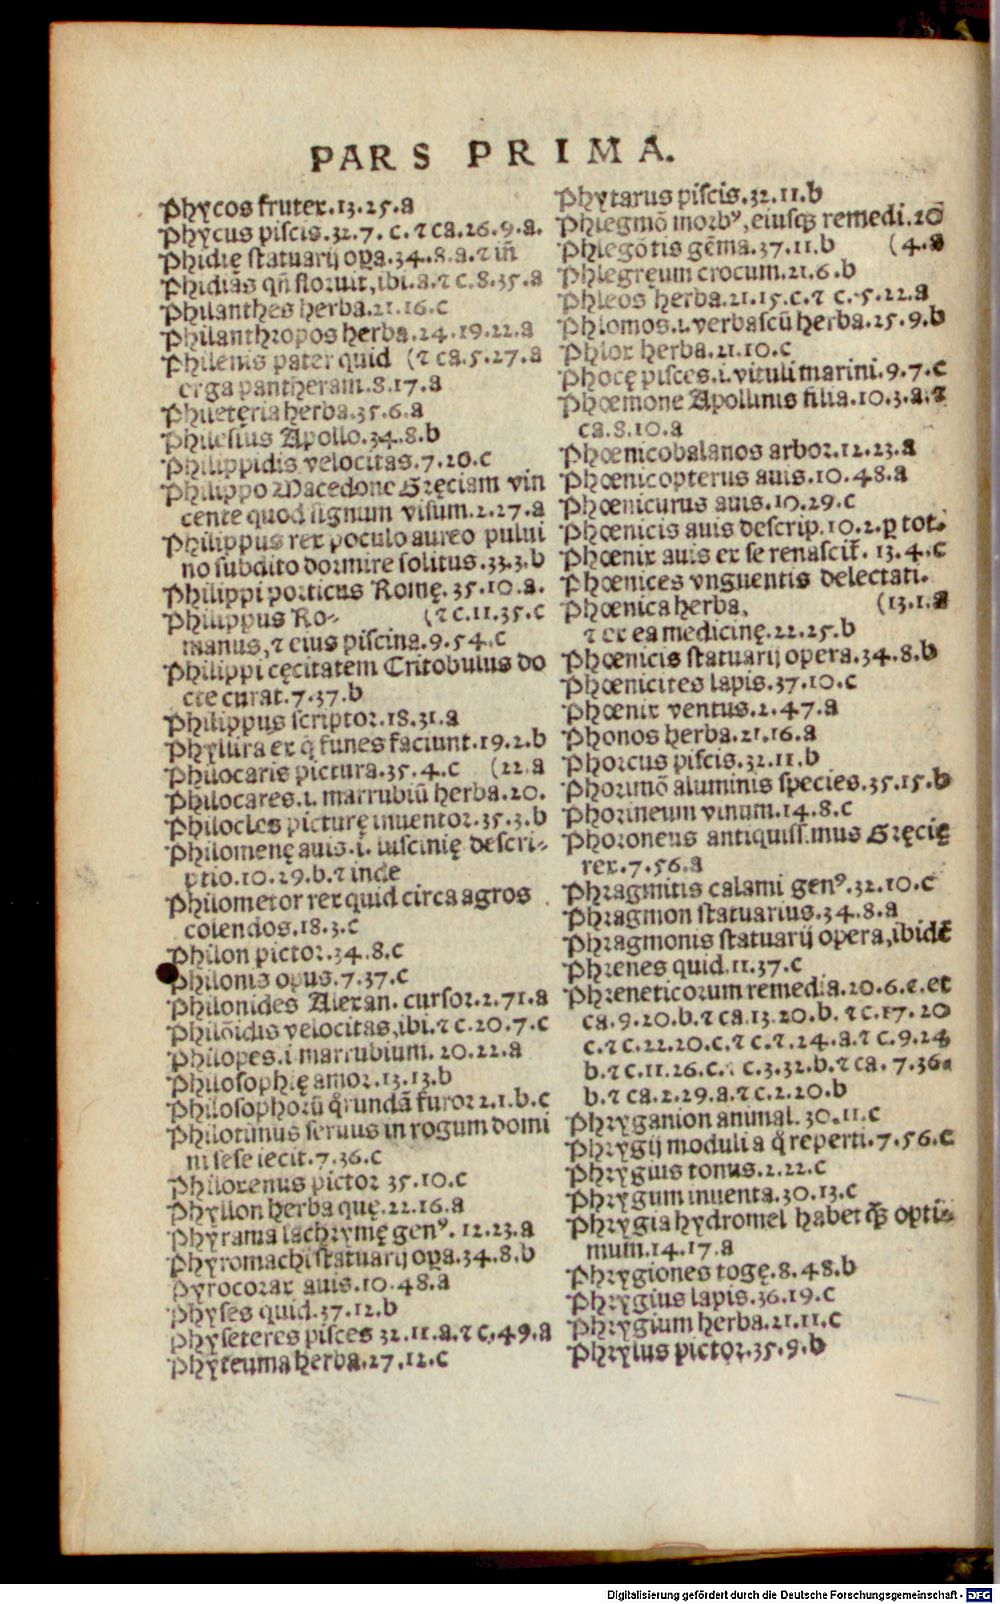 PARS PRIMA.
Phycos frutex.13.25.a
Phycus piscis.32.7. c. ⁊ ca.26.9.a.
Phidię statuarij oꝑa.34.8.a.⁊ iñ
Phidias qñ floruit,ibi.a.⁊ c.8.35.a
Philanthes herba.21.16.c
Philanthropos herba.24.19.22.a
Philenis pater quid (⁊ ca.5.27.a
erga pantheram.8.17.a
Phileteria herba.35.6.a
Philesius Apollo.34.8.b
Philippidis velocitas.7.20.c
Philippo Macedone Gręciam vin
cente quod signum visum.2.27.a
Philippus rex poculo aureo pului
no subdito dormire solitus.33.3.b
Philippi porticus Romę.35.10.a.
Philippus Ro- (⁊ c.11.35.c
manus,⁊ eius piscina.9.54.c
Philippi cęcitatem Critobulus do
cte curat.7.37.b
Philippus scriptor.18.31.a
Phylura ex q̃ funes faciunt.19.2.b
Philocaris pictura.35.4.c (22.a
Philocares.i. marrubiũ herba.20.
Philocles picturę inuentor.35.3.b
Philomenę auis.i. luscinię descri-
ptio.10.29.b.⁊ inde
Philometor rex quid circa agros
colendos.18.3.c
Philon pictor.34.8.c
Philonis opus.7.37.c
Philonides Alexan. cursor.2.71.a
Philõidis velocitas,ibi.⁊ c.20.7.c
Philopes.i marrubium. 20.22.a
Philosophię amor.13.13.b
Philosophorũ q̃rundã furor 2.1.b.c
Philotimus seruus in rogum domi
ni sese iecit.7.36.c
Philoxenus pictor 35.10.c
Phyllon herba quę.22.16.a
Phyrama lachrymę genꝰ. 12.23.a
Phyromachi statuarij oꝑa.34.8.b
Pyrocorax auis.10.48.a
Physes quid.37.12.b
Physeteres pisces 32.11.a.⁊ c.49.a
Phyteuma herba.27.12.c
Phytarus piscis.32.11.b
Phlegmõ morbꝰ,eiusqꝫ remedi.20
Phlegõtis gẽma.37.11.b (4.a
Phlegręum crocum.21.6.b
Phleos herba.21.15.c.⁊ c.5.22.a
Phlomos.i.verbascũ herba.25.9.b
Phlox herba.21.10.c
Phocę pisces.i.vituli marini.9.7.c
Phœmone Apollinis filia.10.3.a.⁊
ca.8.10.a
Phœnicobalanos arbor.12.23.a
Phœnicopterus auis.10.48.a
Phœnicurus auis.10.29.c
Phœnicis auis descrip.10.2.ꝑ tot.
Phœnix auis ex se renascit̃. 13.4.c
Phœnices vnguentis delectati.
Phœnica herba, (13.1.a
⁊ ex ea medicinę.22.25.b
Phœnicis statuarij opera.34.8.b
Phœnicites lapis.37.10.c
Phœnix ventus.2.47.a
Phonos herba.21.16.a
Phorcus piscis.32.11.b
Phorimõ aluminis species.35.15.b
Phorineum vinum.14.8.c
Phoroneus antiquiss.mus Gręcię
rex.7.56.a
Phragmitis calami genꝰ.32.10.c
Phragmon statuarius.34.8.a
Phragmonis statuarij opera,ibidẽ
Phrenes quid.11.37.c
Phreneticorum remedia.20.6.c.et
ca.9.20.b.⁊ ca.13.20.b.⁊ c.17.20
c.⁊ c.22.20.c.⁊ c.⁊.24.a.⁊ c.9.24
b.⁊ c.11.26.c. c.3.32.b.⁊ ca. 7.36.
b.⁊ ca.2.29.a.⁊ c.2.20.b
Phryganion animal.30.11.c
Phrygij moduli a q̃ reperti.7.56.c
Phrygius tonus.2.22.c
Phrygum inuenta.30.13.c
Phrygia hydromel habet qꝫ opti-
mum.14.17.a
Phrygiones togę.8.48.b
Phrygius lapis.36.19.c
Phrygium herba.21.11.c
Phrylus pictor.35.9.b
Digitalisierung gefördert durch die Deutsche Forschungsgemeinschaft - DFG